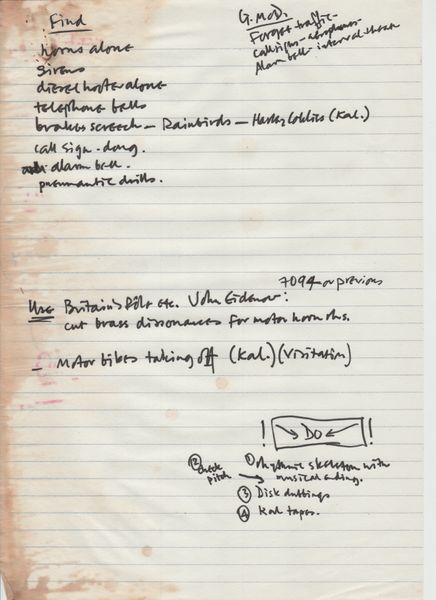 Find
horns alone
sirens
diesel hooter alone
telephone bells
brakes screech – Rainbirds – Harley Cobbies (Kal.)
call sign - dong.
alarm bell.
pneumantic drills.
G.M.O.D.
Forget traffic -
call signs - aerophones
Alarm bell - interval theatr
7094 or previous
Use Britain's Pôle etc. John Eidenow:
cut brass dissonances for motor horn rhs.
– Motor bikes taking off (Kal.) (Visitation)
! → Do ← !!
① rhythmic skeleton with
musical ending.
② Check
pitch
③ Disk dubbings
④ Kal tapes.